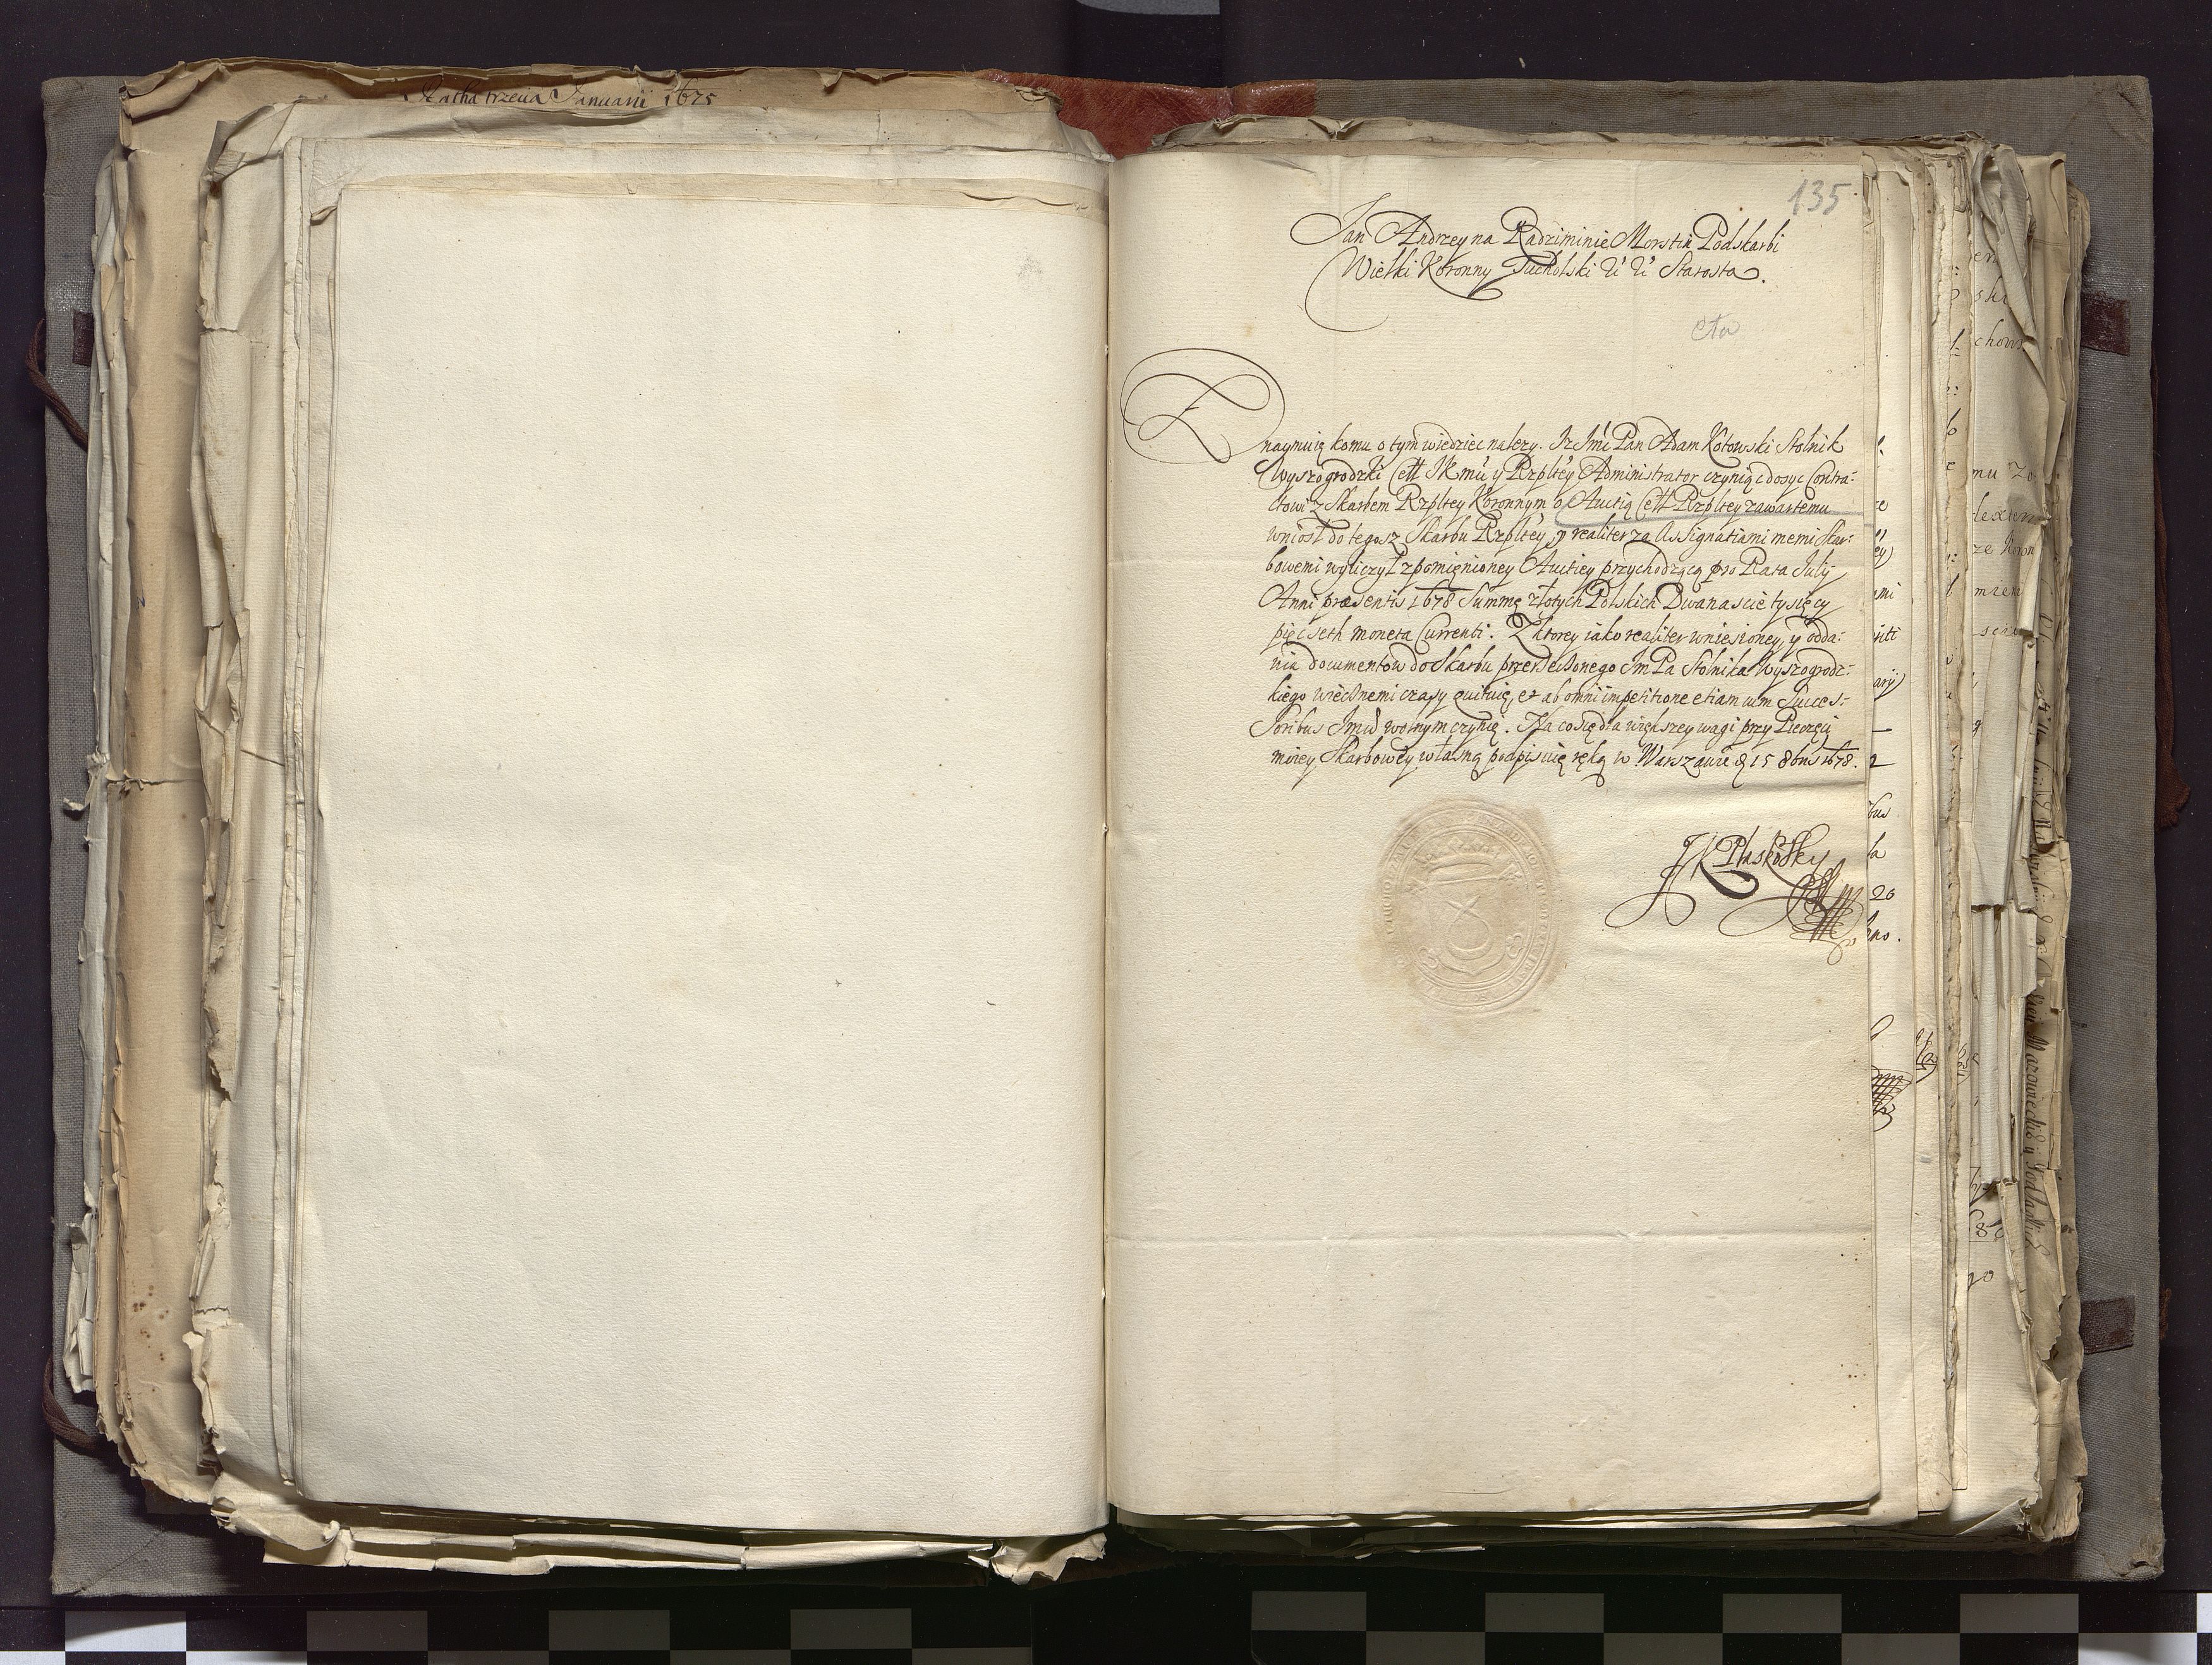 Ratha trzecia Januarii 1675
135
Jan Andrzey na Radziminie Morstin Podskarbi
Wielki Koronny Tucholski &c &c Starosta.
Cła
Znaymuię komu o tym wiedziec nalezy. Iz Jmć Pan Adam Kotowski Stolnik
Wyszogrodzki Cełł JKmći y Rzpltey Administrator czyniąc dosyc Contra:
ctowi z Skarbem Rzpltey Koronnym o Auctią Cełł Rzpltey zawartemu
wniósł do tegosz Skarbu Rzpltey, y realiter za Assignatiami memi Skar:
bowemi wyliczył z pomięnioney Auctiey przychodzącą pro Rata Julij
Anni præsentis 1678 Summę złotych Polskich Dwanascie tysięcy
pięcseth moneta Currenti. Z ktorey iako realiter wniesioney, y odda:
nia documentow do Skarbu przerzeczonego Jm Pa Stolnika Wyszogrodz:
kiego wiecznemi czasy quituię, et ab omni impetitione etiam cum Succes:
soribus Jmći wolnym czynię. Na co się dla większey wagi przy Pieczęci
moiey Skarbowey własną podpisuię ręką w Warszawie d 15 8bris 1678.